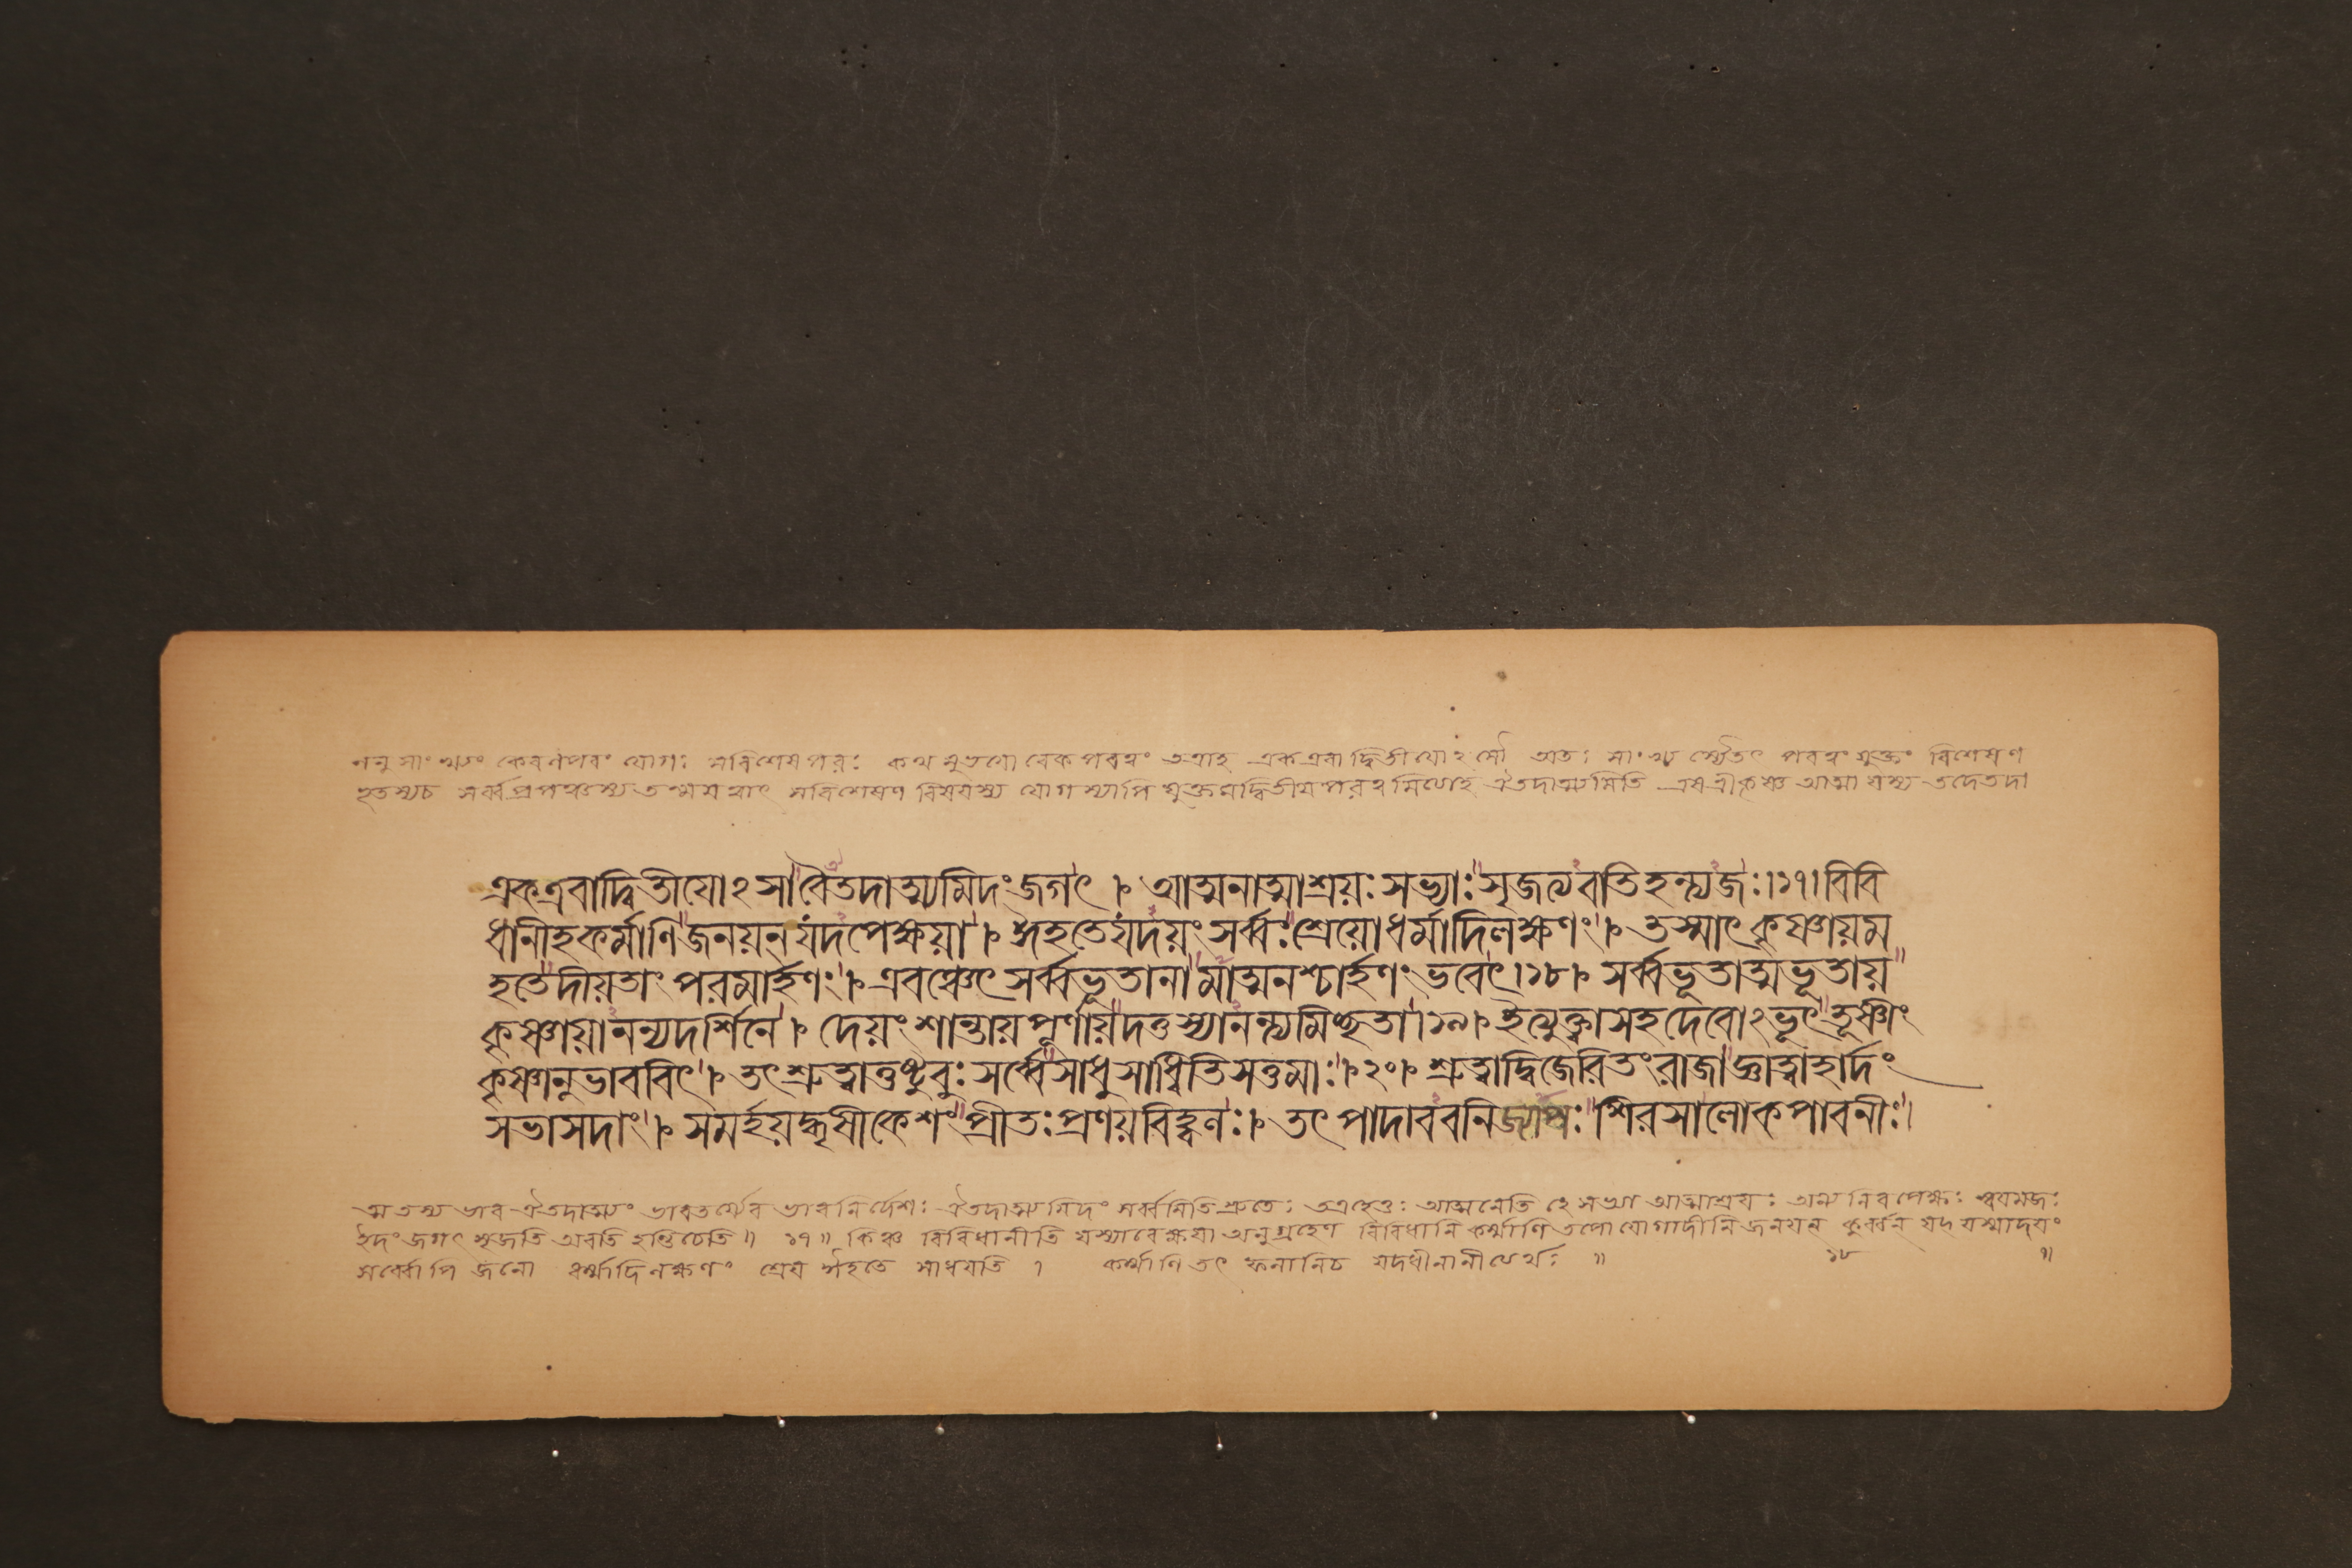 ননু সাংখ্যং কেবলপরং যোগঃ সবিশেষপরঃ কথমুভযোরেকপরত্বং তত্রাহ এক এবাদ্বিতীযোঽসৌ অতঃ সাংখ্যস্যৈতৎ পরত্বং যুক্তং বিশেষণ
ভূতস্যচ সর্ব্বপ্রপঞ্চস্য তন্ময়ত্বাৎ সবিশেষণ বিষয়স্য যোগস্যাপি যুক্তমদ্বিতীয়পরত্বমিত্যাহ ঐতদাত্ম্যমিতি এষ শ্রীকৃষ্ণ আত্মা যস্য তদেতদা
একএবাদ্বিতীযোঽসাবৈতদাত্ম্যমিদংজগৎ । আত্মনাত্মাশ্রয়ঃসভ্যাঃসৃজত্যবতিহন্ত্যজঃ।১৭।বিবি
ধানীহকর্ম্মাণিজনয়ন্‌যদপেক্ষয়া । ঈহতেযদয়ংসর্ব্বঃশ্রেয়োধর্ম্মাদিলক্ষণং । তস্মাৎকৃষ্ণায়ম
হতেদীয়তাংপরমার্হণং । এবঞ্চেৎসর্ব্বভূতানামাত্মনশ্চার্হণংভবেৎ।১৮। সর্ব্বভূতাত্মভূতায়
কৃষ্ণায়ানন্যদর্শিনে । দেয়ংশান্তায়পূর্ণায়দত্তস্যানন্ত্যমিচ্ছতা।১৯। ইত্যুক্ত্বাসহদেবোঽভূৎতূষ্ণীং
কৃষ্ণানুভাববিৎ । তৎশ্রুত্বাতুষ্টুবুঃসর্ব্বেসাধুসাধ্বিতিসত্তমাঃ।২০। শ্রুত্বাদ্বিজেরিতংরাজাজ্ঞাত্বাহার্দং
সভাসদাং । সমর্হয়দ্ধৃষীকেশংপ্রীতঃপ্রণয়বিহ্বলঃ । তৎপাদাববনিজ্যাপঃশিরসালোকপাবনীঃ।
ত্ম তস্য ভাব ঐতদাত্ম্যং ভাবতর্য্যেব ভাবনির্দেশঃ ঐতদাত্ম্যমিদং সর্ব্বমিতিশ্রুতেঃ তত্রহেতুঃ আত্মনেতি হে সভ্যা আত্মাশ্রয়ঃ অন্যনিরপেক্ষঃ স্বয়মজঃ
ইদং জগৎ সৃজতি অবতি হন্তিচেতি॥ ১৭॥ কিঞ্চ বিবিধানীতি যস্যাবেক্ষযা অনুগ্রহেণ বিবিধানি কর্ম্মাণি তপোযোগাদীনি জনযন্ কুর্ব্বন্ যদ্ যস্মাদয়ং
সর্ব্বোপি জনো ধর্ম্মাদিলক্ষণং শ্রেয ঈহতে সাধযতি । কর্ম্মাণি তৎ ফলানিচ যদধীনানীত্যর্থঃ ॥ ১৮ ॥